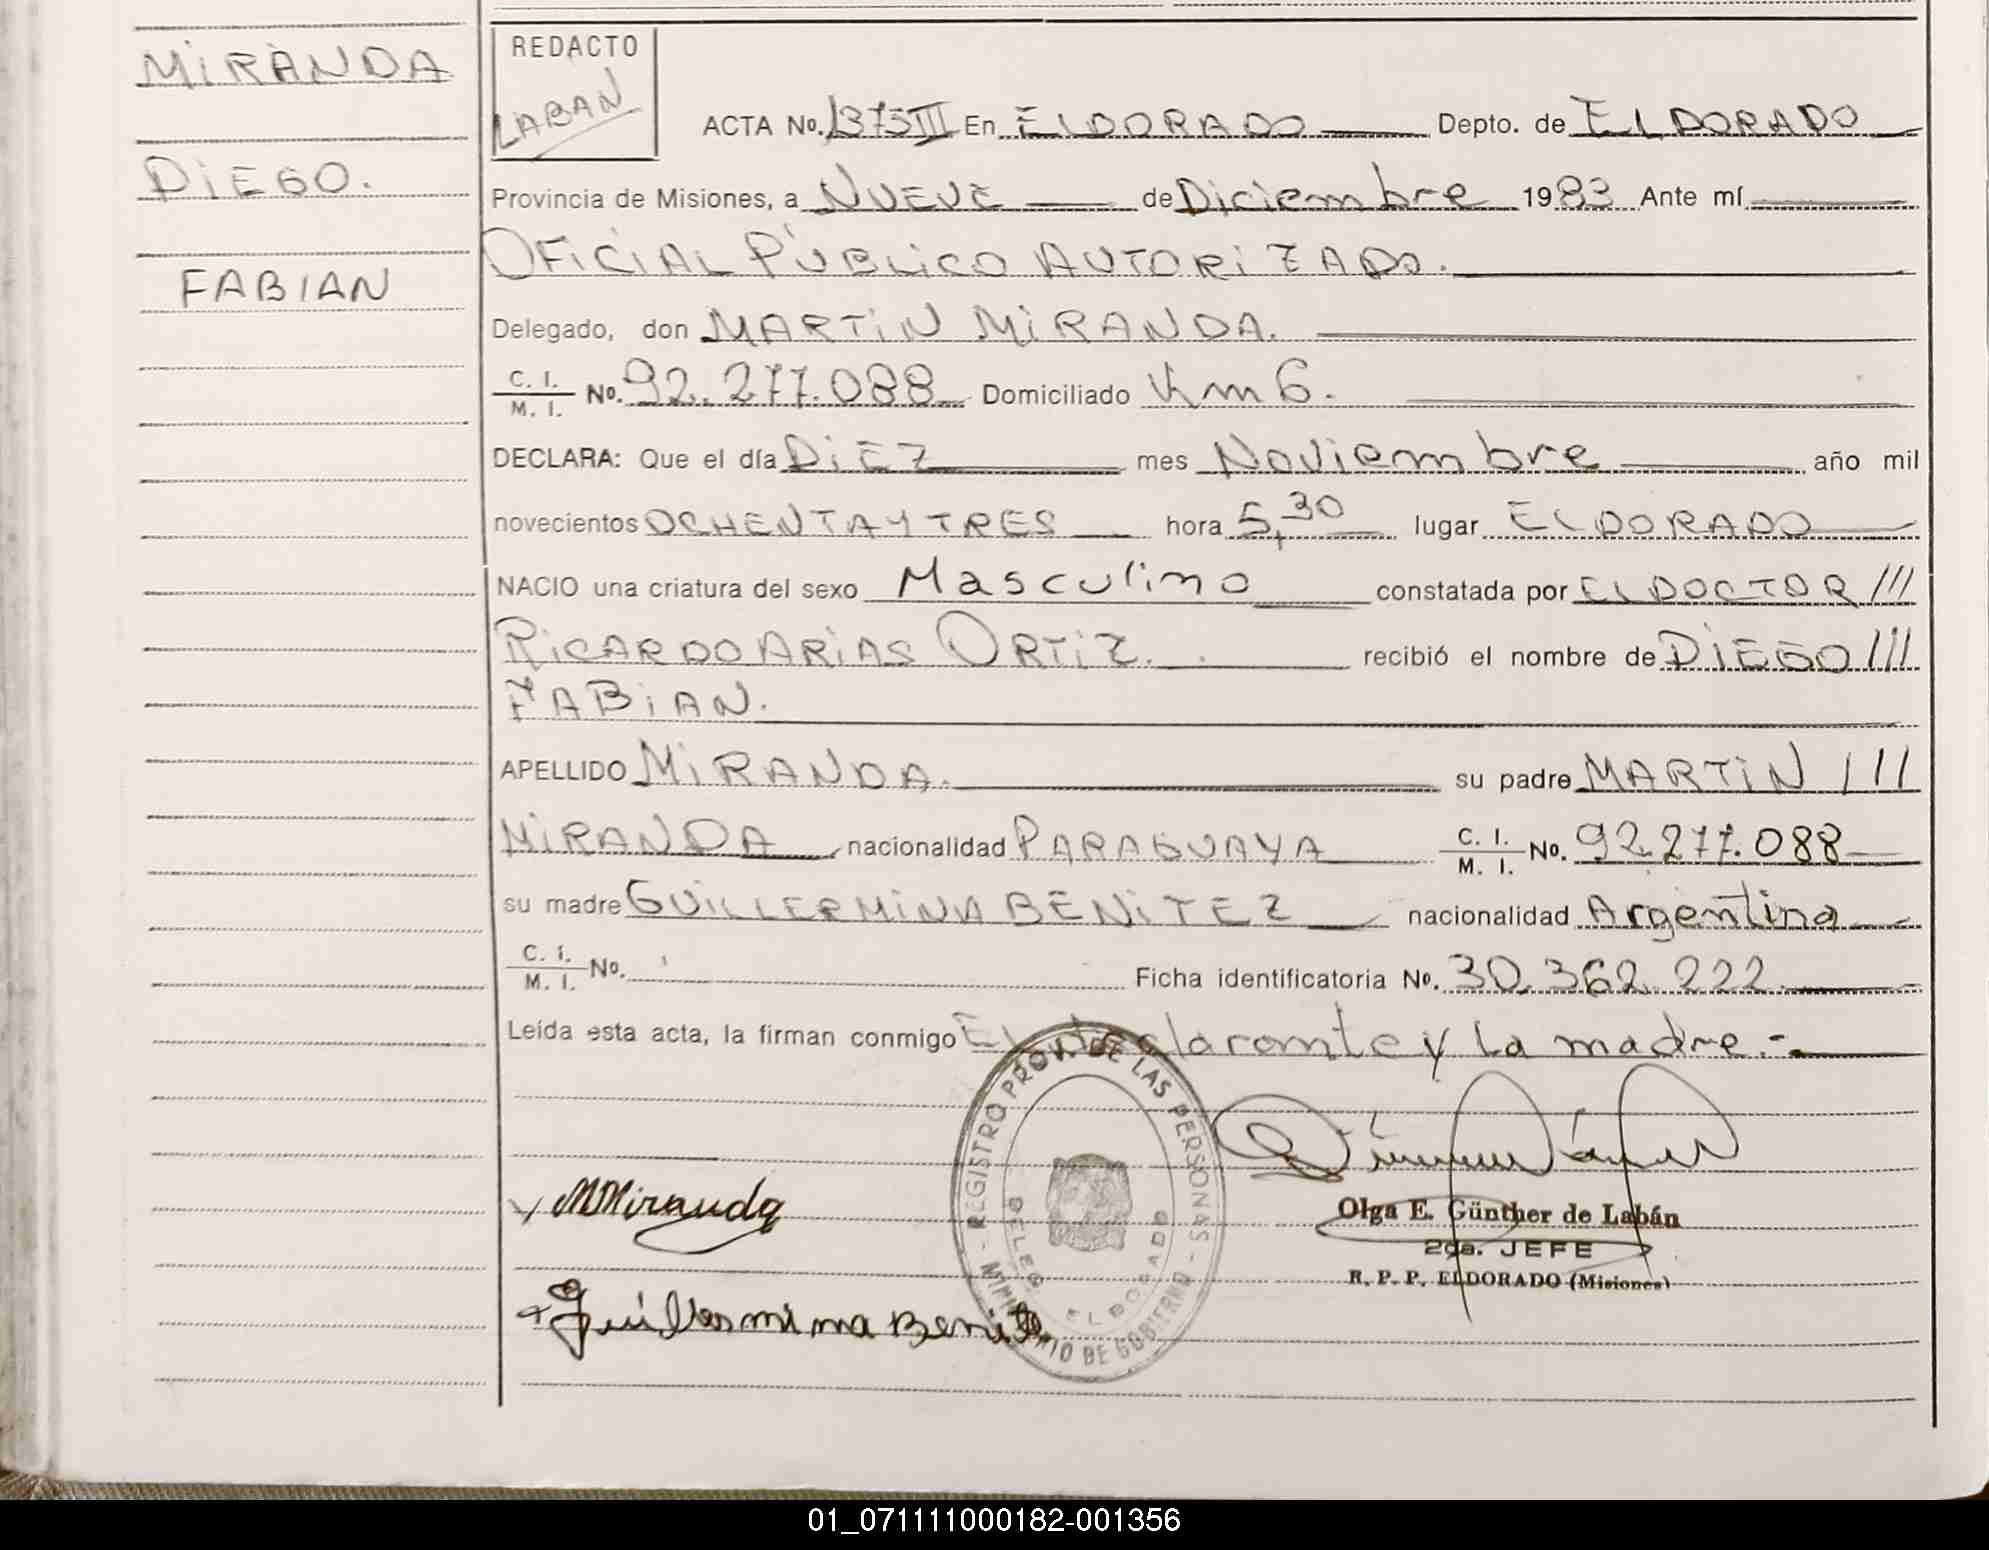 MIRANDA
DIEGO.
FABIAN
REDACTO
LABAN
ACTA No. 1375 III En ELDORADO Depto. de ELDORADO
Provincia de Misiones, a NUEVE de Diciembre 1983 Ante mí
OFICIAL PUBLICO AUTORIZADO.
Delegado, don MARTIN MIRANDA.
C. I. / M. I. No. 92.277.088 Domiciliado Km 6.
DECLARA: Que el día DIEZ mes Noviembre año mil
novecientos OCHENTA Y TRES hora 5,30 lugar ELDORADO
NACIO una criatura del sexo Masculino constatada por EL DOCTOR ///
RICARDO ARIAS ORTIZ. recibió el nombre de DIEGO ///
FABIAN.
APELLIDO MIRANDA. su padre MARTIN ///
MIRANDA nacionalidad PARAGUAYA C. I. / M. I. No. 92.277.088
su madre GUILLERMINA BENITEZ nacionalidad Argentina
C. I. / M. I. No. Ficha identificatoria No. 30.362.222
Leída esta acta, la firman conmigo El declarante y La madre.-
REGISTRO PROV. DE LAS PERSONAS - MINISTERIO DE GOBIERNO -
DELEG. ELDORADO
MMiranda
Guillermina Benitez
Olga E. Günther de Labán
2da. JEFE
R. P. P. ELDORADO (Misiones)
01_071111000182-001356